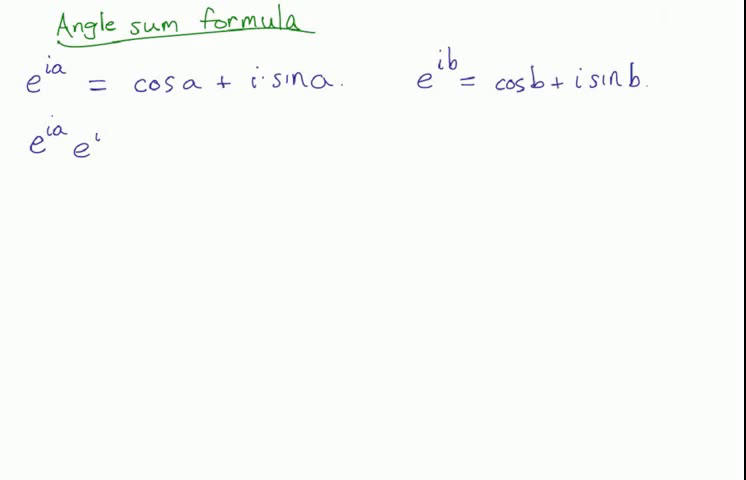 Angle sum formula
e^{ia} = cos a + i · sin a. e^{ib} = cos b + i sin b.
e^{ia} e^{i